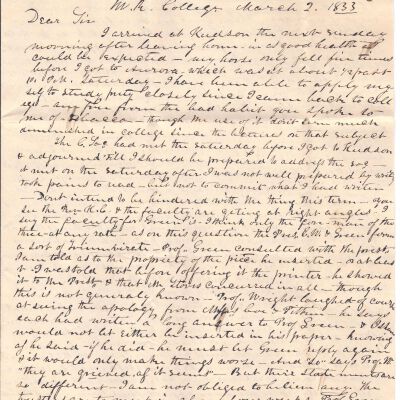 W. R. College March 2. 1833
Dear Sir
I arrived at Hudson the next Sunday
morning after leaving home - in as good health as
could be expected - my horse only fell five times
before I got to Aurora which was at about 1/2 past
Saturday - I have been able to apply my
self to study pretty closely since I came back to Coll
ege - am from the bad habit you spoke to
me of - Tobacco - though the use of it is very much
diminished in college since the lectures on that subject
The C. Soc had met the Saturday before I got to Hudson
& adjourned till I should be prepared to address the soc -
it met on the Saturday after I was not well prepared by writing
took pains to read - but not to commit what I had written
Dont intend to be hindered with the thing this term - you
see the & the faculty are getting at right angles I
say the faculty for Green I think
three at any rate - as on this question the Pres. W. & Green form
a sort of Triumvirate - Prof. Green consulted with the prest.
I am told as to the propriety of the piece he inserted - or at least
I was told that before offering it the printer - he showed
it to the Prest & that Mr Storrs concurred in all - though
this is not generaly known - Prof. Wright laughed of course
at seeing the apology from he says
each had written a long answer to Prof Green - &
would not let either be inserted in his paper - knowing
as he said - if he did - he must let Green reply again
& it would only make things worse - And so says Prof. W
"they are grieved, it seems" - But their statements are
so different - I am not obliged to believe any - The